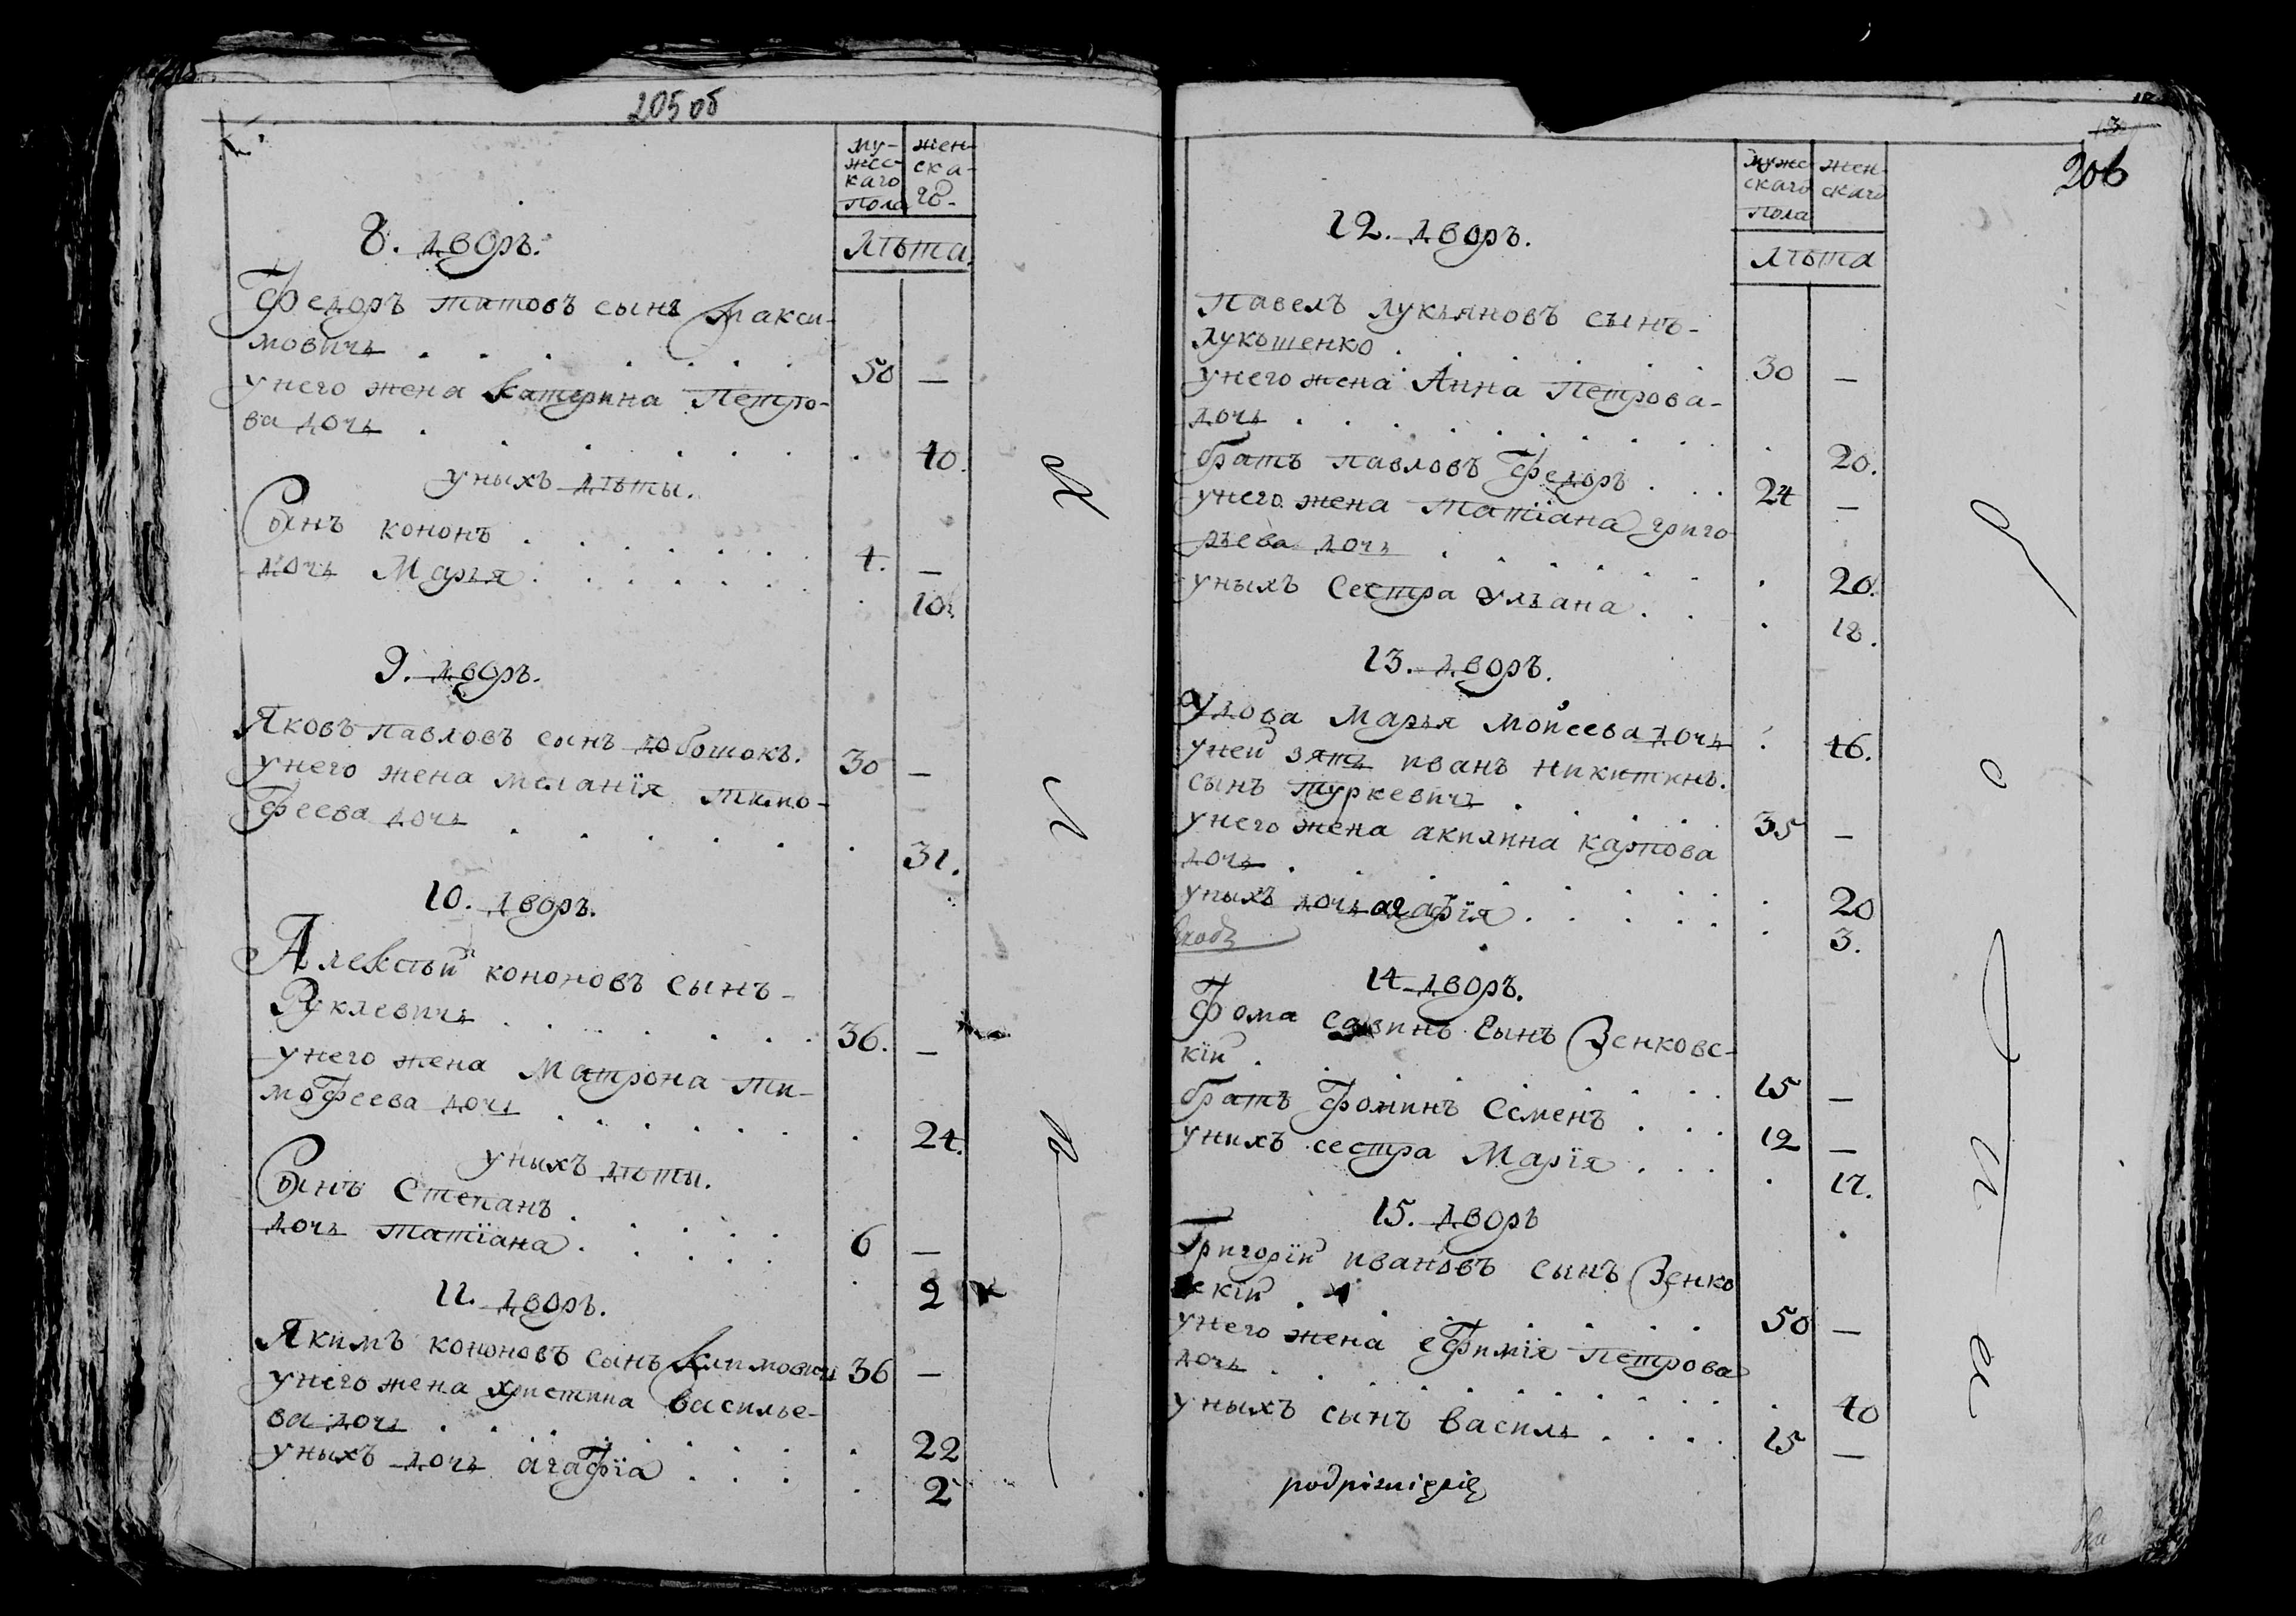 205 об
му-
жес-
каго
пола
жен-
ска-
го.
лѣта.
8. дворъ.
Федоръ титовъ сынъ Макси-
мовичь . . . . . . . 50 —
унего жена катерина Петро-
ва дочь . . . . . . . 40.
уныхъ дѣти.
Сынъ кононъ . . . . . . 4. —
дочь Марья . . . . . . 10.
9. дворъ.
Яковъ павловъ сынъ добошокъ. 30 —
унего жена меланія тимо-
феева дочь . . . . . . 31.
10. дворъ.
Алексѣй кононовъ сынъ-
Руклевичь . . . . . . 36. —
унего жена Матрона ти-
мофеева дочь . . . . . . 24.
уныхъ дѣти.
Сынъ Степанъ . . . . . 6 —
дочь татіана . . . . . 2
11. дворъ.
Якимъ кононовъ сынъ климовичь 36 —
унего жена христина василье-
ва дочь . . . . . . . 22
уныхъ дочь агафіа . . . . 2
206
муже
скаго
пола
жен-
скаго
лѣта
12. дворъ.
Павелъ лукьяновъ сынъ-
лукъшенко . . . . . . 30 —
унего жена Анна Петрова-
дочь . . . . . . . . 20.
братъ павловъ Федоръ . . . 24 —
унего жена татіана григо
рьева дочь . . . . . . 20.
уныхъ Сестра ульана . . . 18.
13. дворъ.
Удова Марья моисеева дочь . 46.
уней зять иванъ никитинъ.
сынъ туркевичь . . . . . 35 —
унего жена акилина карпова
дочь . . . . . . . . 20
уныхъ дочь агафія . . . . . 3.
14 дворъ.
Фома савинъ Сынъ Зенковс-
кій . . . . . . . . 15 —
братъ Фоминъ Семенъ . . . 12 —
унихъ сестра Марія . . . . 17.
15. дворъ
Григорій ивановъ сынъ Зенко
вскій . . . . . . . 50 —
унего жена ефимія петрова
дочь . . . . . . . . 40
уныхъ сынъ василь . . . . 15 —